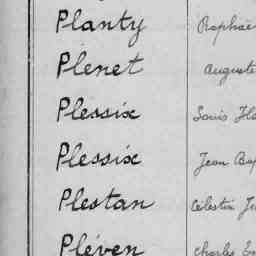 Planty Raphaë
Plenet Auguste
Plessix Louis
Plessix Jean Bap
Plestan Célestin
Pléven Charles